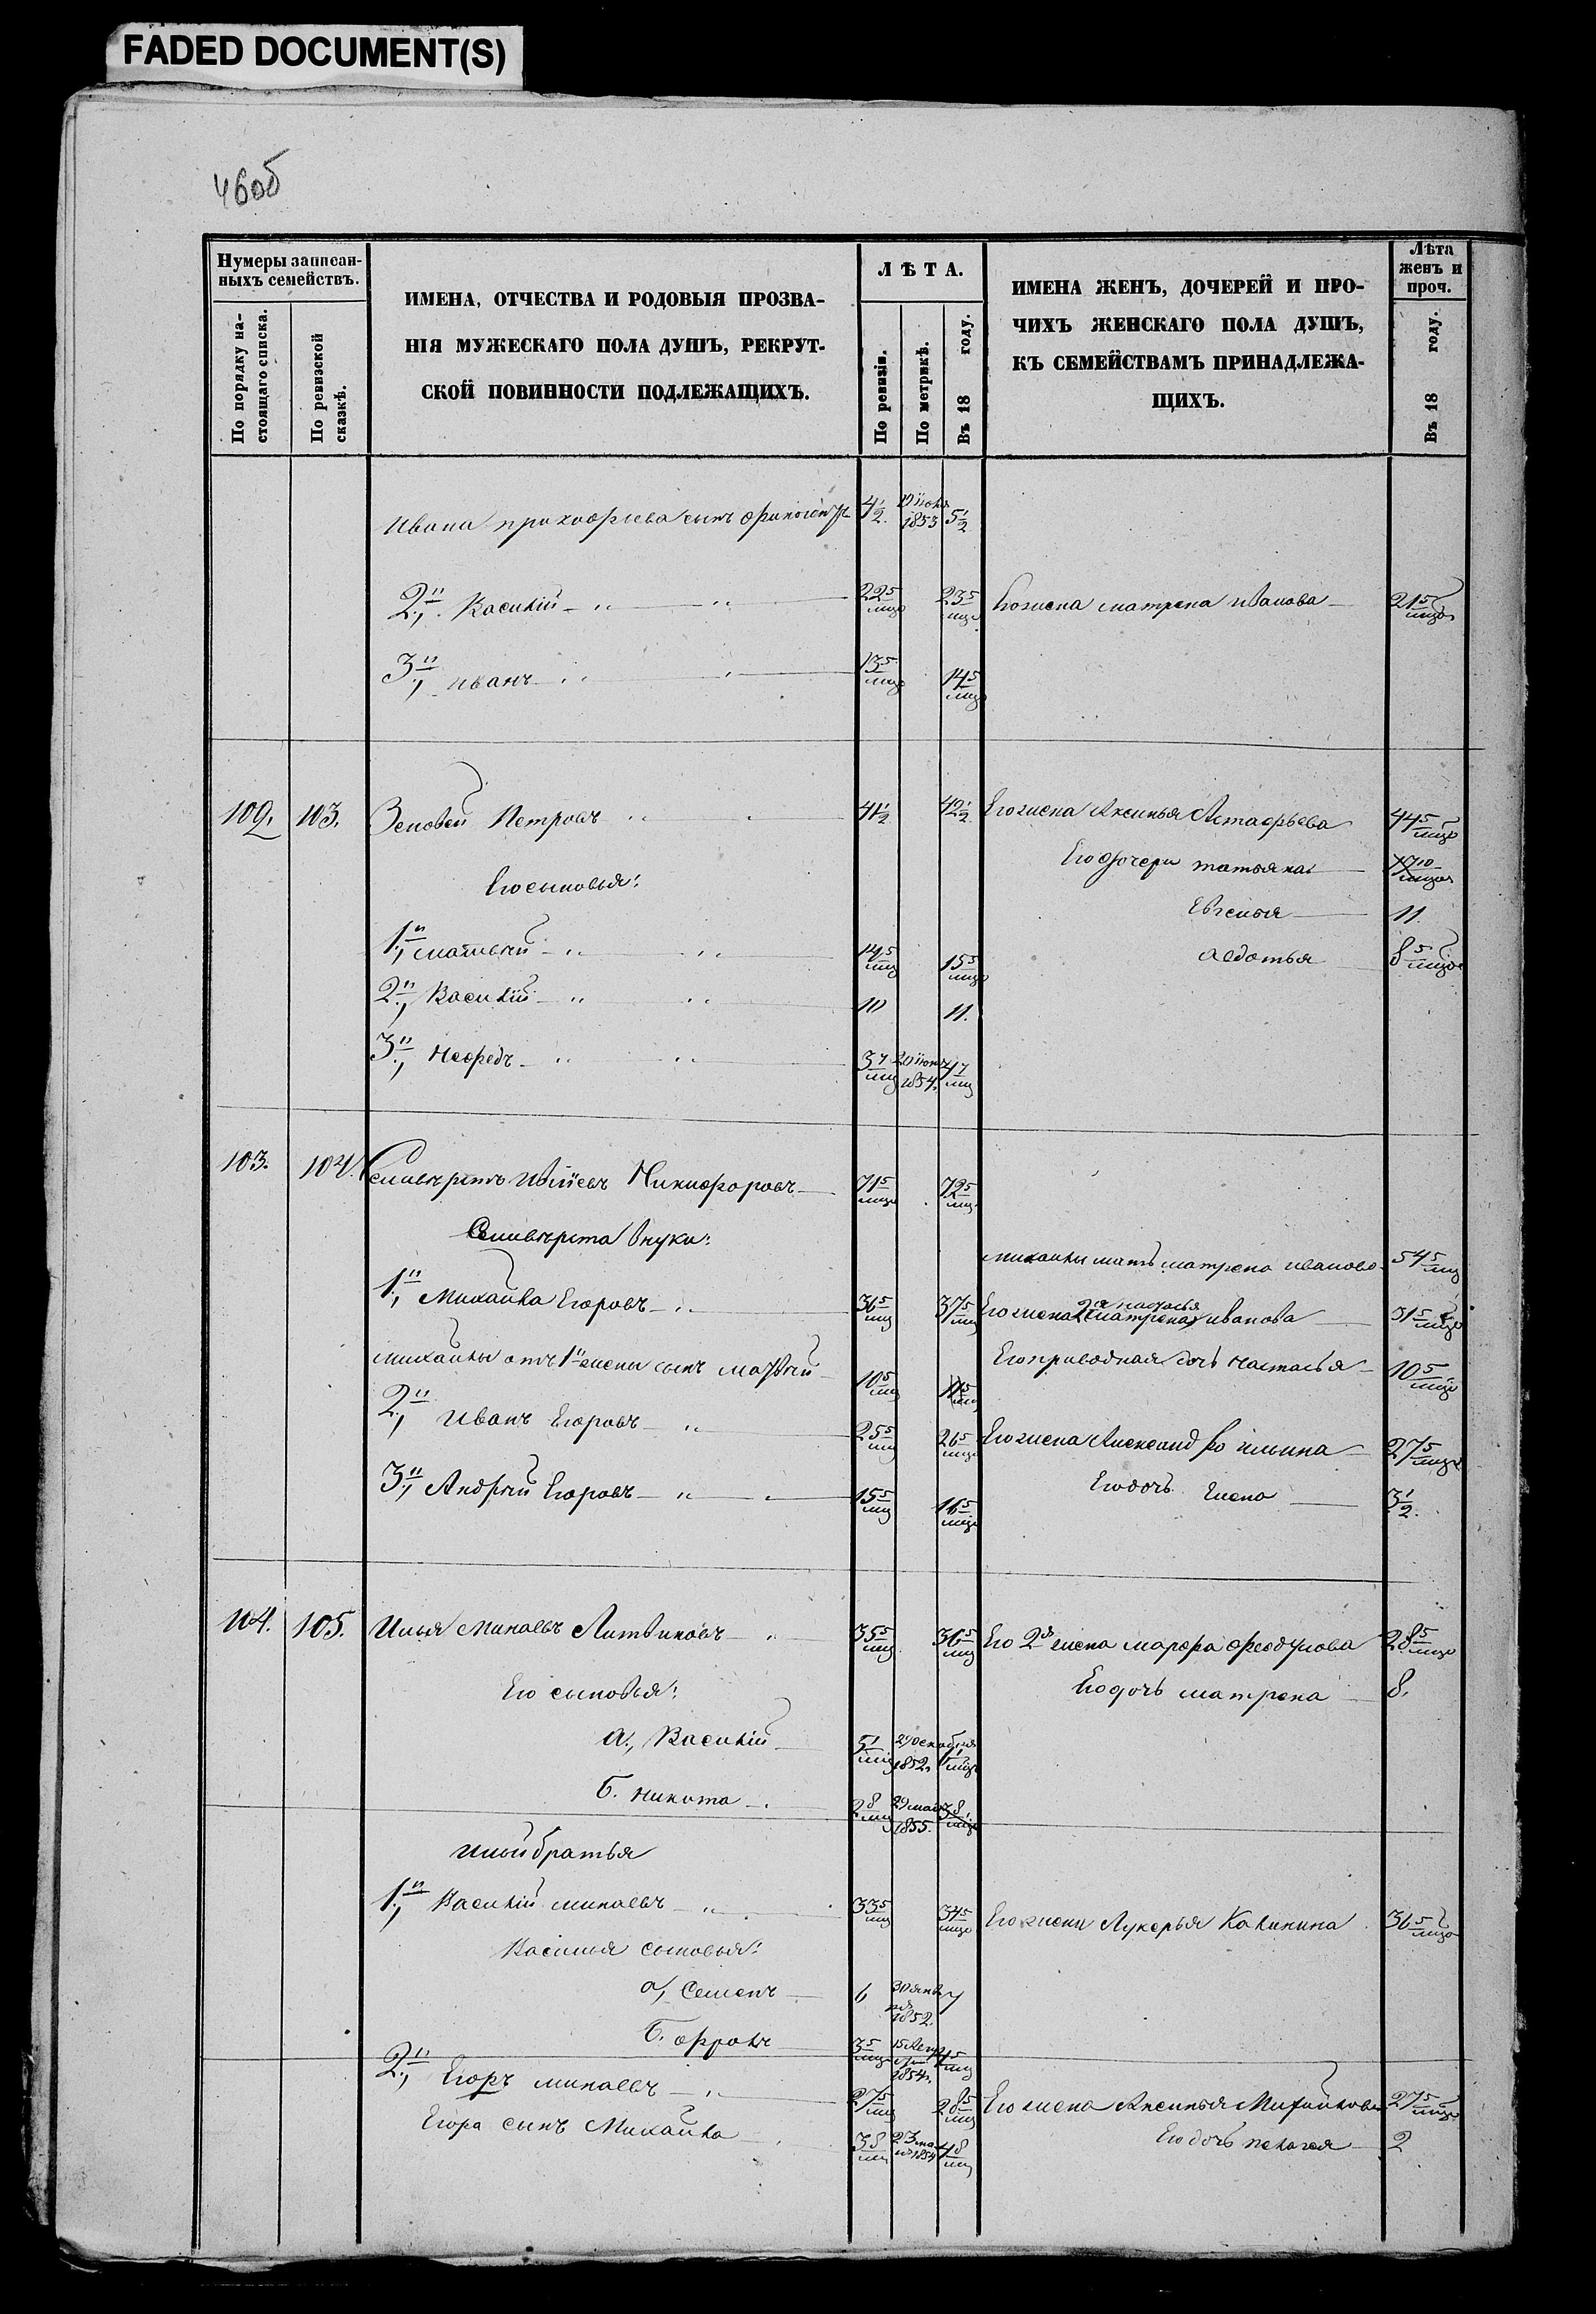 FADED DOCUMENT(S)
460б
Нумеры записан-
ныхъ семействъ.
По порядку на-
стоящаго списка.
По ревизской
сказкѣ.
ИМЕНА, ОТЧЕСТВА И РОДОВЫЯ ПРОЗВА-
НІЯ МУЖЕСКАГО ПОЛА ДУШЪ, РЕКРУТ-
СКОЙ ПОВИННОСТИ ПОДЛЕЖАЩИХЪ.
ЛѢТА.
По ревизіи.
По метрикѣ.
Въ 18 году.
ИМЕНА ЖЕНЪ, ДОЧЕРЕЙ И ПРО-
ЧИХЪ ЖЕНСКАГО ПОЛА ДУШЪ,
КЪ СЕМЕЙСТВАМЪ ПРИНАДЛЕЖА-
ЩИХЪ.
Лѣта
женъ и
проч.
Въ 18 году.
Ивана прокофьева сынъ 4½ 1853 5½
2й Василій 22 5/мцо 23 5/мцо Его жена матрена иванова 21 5/мцо
3й иванъ 13 5/мцо 14 5/мцо
102. 103. Зеновей Петровъ 41½ 42½ Его жена Аксинья Астафьева 44 5/мцо
Его дочери татьяна 17 10/мцо
Его сыновья:
Евгенья 11.
1й матвѣй 14 5/мц 15 5/мцо авдотья 8 5/мцо
2й Василій 10 11.
3й Нефедъ 3 7/мц 20 іюня 1854. 4 7/мц
103. 104. Селиверстъ Никифоровъ 71 5/мцо 72 5/мц
Селиверста внуки:
михайлы мать матрена иванова 54 5/мц
1й Михайла Егоровъ 36 5/мц 37 5/мц Его жена 2я настасья матрена иванова 31 5/мцо
михайлы отъ 1й жены сынъ матвѣй 10 5/мц 11 5/мц Его приводная дочь настасья 10 5/мцо
2й Иванъ Егоровъ 25 5/мц 26 5/мцо Его жена Александра ильина 27 5/мцо
3й Андрѣй Егоровъ 15 5/мц 16 5/мцо Его дочь Елена 3½.
104. 105. Илья Минаевъ Литвиновъ 35 5/мц 36 5/мц Его 2я жена марфа феодулова 28 5/мцо
Его сыновья: Его дочь матрена 8.
а, Василій 5 1/мц 29 декабря 1852. 6 1/мцо
б. никита 2 8/мц 29 мая 1855. 3 8/мцо
Ильи братья
1й Василій минаевъ 33 5/мц 34 5/мцо Его жена Лукерья Калинина 36 5/мцо
Василья сыновья:
а, Семенъ 6 30 января 1852. 7
б. фролъ 3 5/мцо 15 Августа 1854. 4 5/мц
2й Егоръ минаевъ 27 5/мц 28 5/мц Его жена Аксинья Михайлова 27 5/мцо
Егора сынъ Михайла 3 8/мц 23 мая 1854 4 8/мц Его дочь пелагея 2